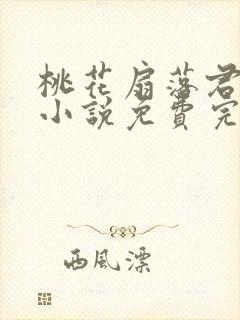 桃花扇落君
小說免費完
西風漂